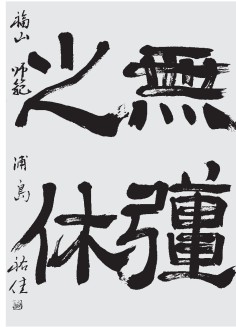 無彊
之休
福山 師範 浦島 祐佳